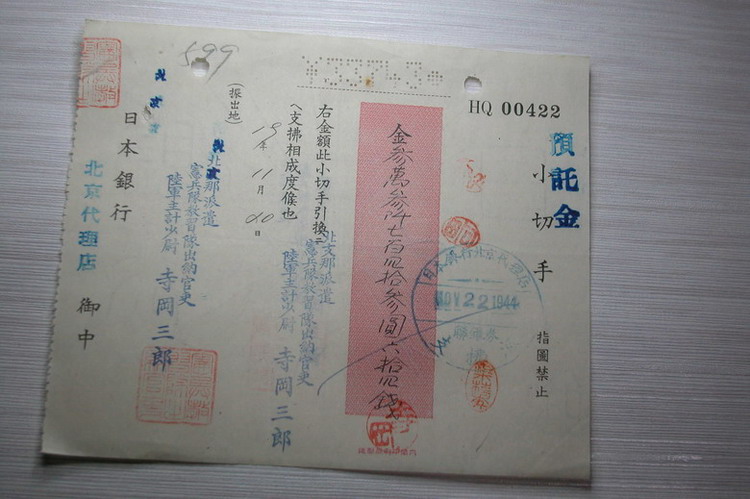 HQ 00422
預託金
小切手
指圖禁止
日本銀行北京代理店
NOV 22 1944
金参萬参阡七百四拾参圓六拾四銭
右金額此小切手引換ニ
支拂相成度候也
北支那派遣
憲兵隊教習隊出納官吏
陸軍主計少尉 寺岡三郎
19年 11月 20日
(振出地)
北京
北支那派遣
憲兵隊教習隊出納官吏
陸軍主計少尉 寺岡三郎
日本銀行
北京代理店 御中
599